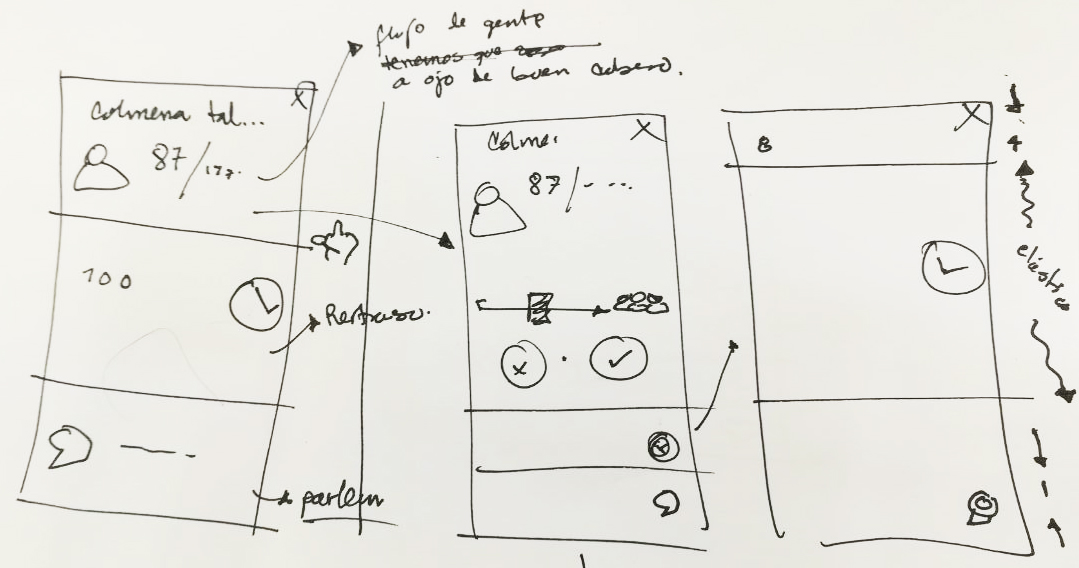 flujo de gente
tenemos que
a ojo de buen cubero.
X
Colmena tal...
87/177.
100
Retraso.
parlem
Colme.
X
87/- ...
x
✓
X
8
4
elástico
1